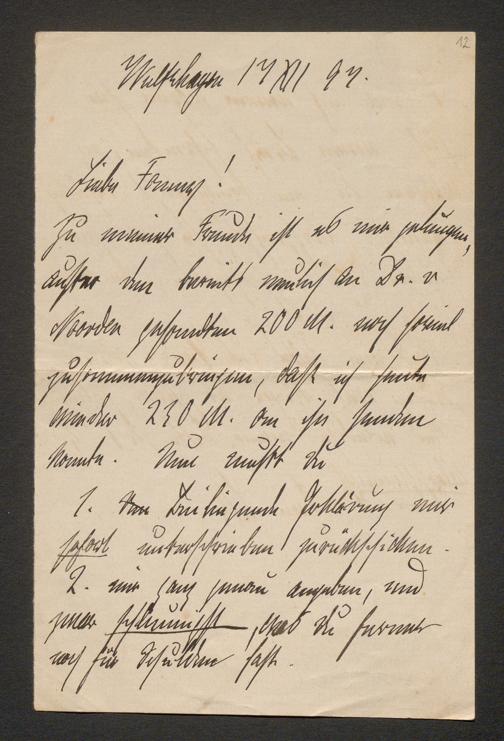 12
Wolfshagen 17 XII 97.
Liebe Fommy!
Zu meiner Freude ist es mir gelungen,
außer den bereits neulich an Dr. v
Noorden gesandten 200 M. noch soviel
zusammenzubringen, daß ich heute
wieder 230 M. an ihn senden
konnte. Nun mußt du
1. die beiliegende Erklärung mir
sofort unterschrieben zurückschicken.
2. mir ganz genau angeben, und
zwar schleunigst, was du ferner
noch für Schulden hast.